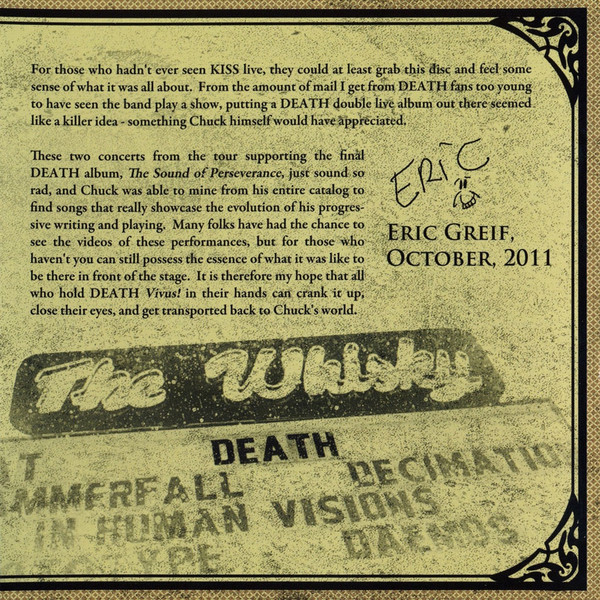 For those who hadn't ever seen KISS live, they could at least grab this disc and feel some
sense of what it was all about. From the amount of mail I get from DEATH fans too young
to have seen the band play a show, putting a DEATH double live album out there seemed
like a killer idea - something Chuck himself would have appreciated.
These two concerts from the tour supporting the final
DEATH album, The Sound of Perseverance, just sound so
rad, and Chuck was able to mine from his entire catalog to
find songs that really showcase the evolution of his progres-
sive writing and playing. Many folks have had the chance to
see the videos of these performances, but for those who
haven't you can still possess the essence of what it was like to
be there in front of the stage. It is therefore my hope that all
who hold DEATH Vivus! in their hands can crank it up,
close their eyes, and get transported back to Chuck's world.
ERIC
ERIC GREIF,
OCTOBER, 2011
The Whisky
AT DEATH
AMMERFALL DECIMATIO
IN HUMAN VISIONS
TYPE DAEMOS